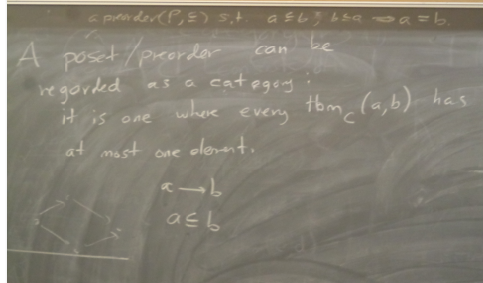 a preorder (P, ≤) s.t. a ≤ b, b ≤ a ⇒ a = b.
A poset/preorder can be
regarded as a category;
it is one where every Hom_C(a,b) has
at most one element.
a → b
a ≤ b